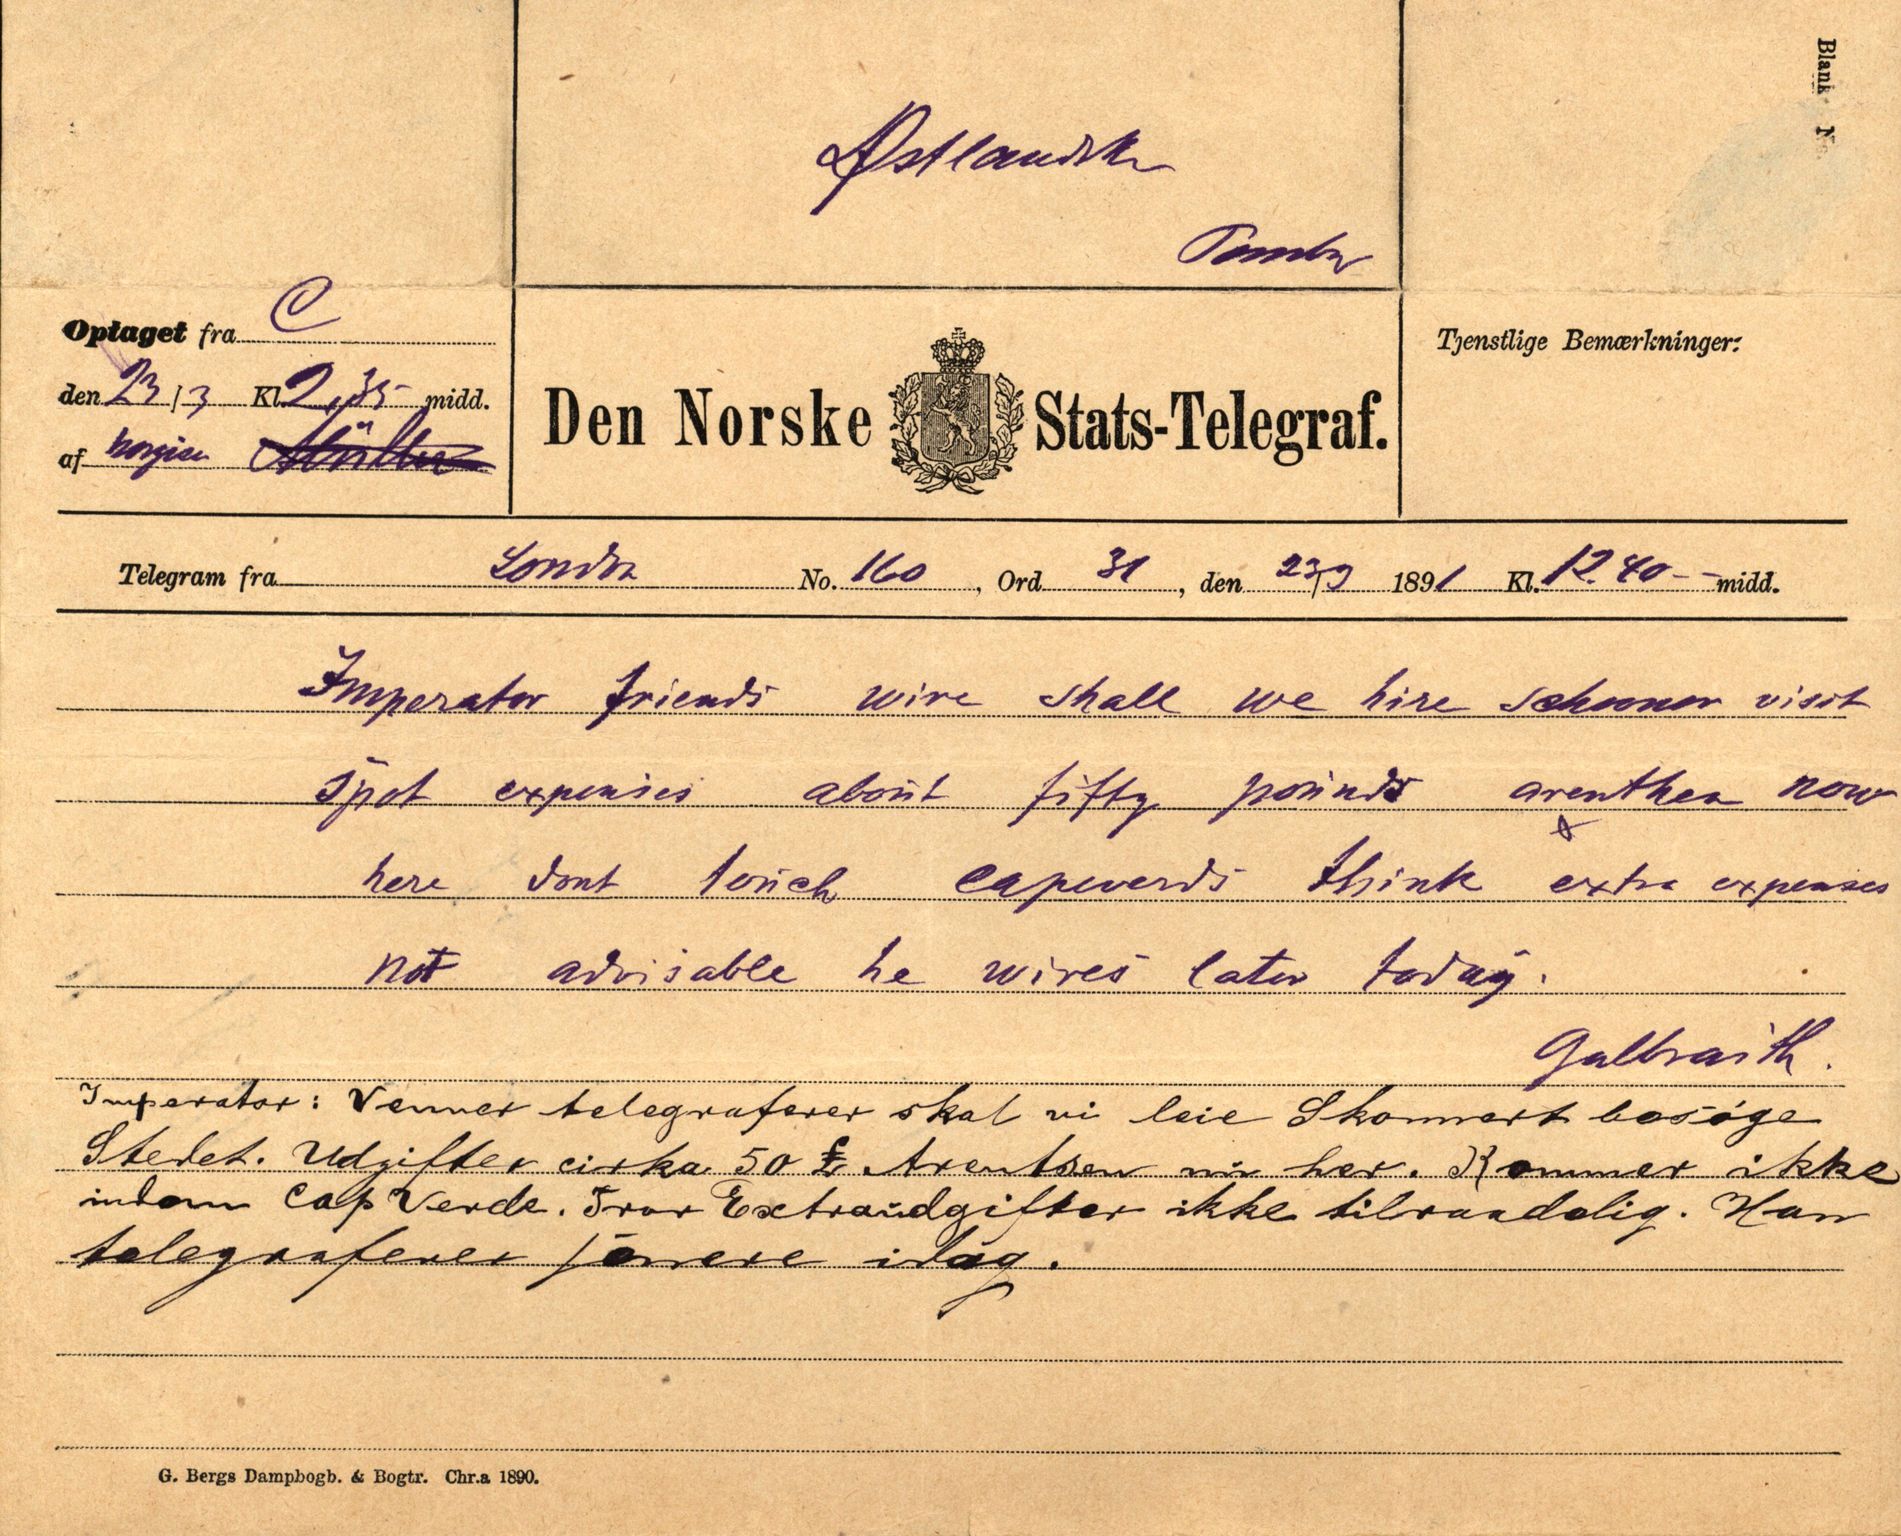 Blank N
Østlandske
Optaget fra C
den 23/3 Kl. 2,35 midd.
af
Den Norske Stats-Telegraf.
Tjenstlige Bemærkninger:
Telegram fra London No. 160, Ord 31, den 23/3 1891 Kl. 12.40 - - midd.
Imperator friends wire shall we hire schooner visit
spot expenses about fifty pounds arenthen now
here dont touch capeverds think extra expenses
not advisable he wires later today.
Galbraith.
Imperator: Venner telegraferer skal vi leie Skonnert besöge
Stedet. Udgifter cirka 50 £. Arentsen nu her. Kommer ikke
indom Cap Verde. Tror Extraudgifter ikke tilraadelig. Han
telegraferer senere idag.
G. Bergs Dampbogb. & Bogtr. Chr.a 1890.